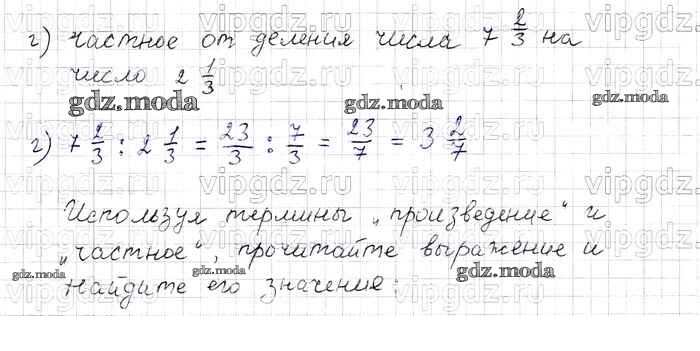 г) частное от деления числа 7 2/3 на
число 2 1/3
gdz.moda gdz.moda gdz.moda
г) 7 2/3 : 2 1/3 = 23/3 : 7/3 = 23/7 = 3 2/7
Используя термины „произведение“ и
„частное“, прочитайте выражение и
найдите его значение:
gdz.moda gdz.moda gdz.moda
vipgdz.ru vipgdz.ru vipgdz.ru